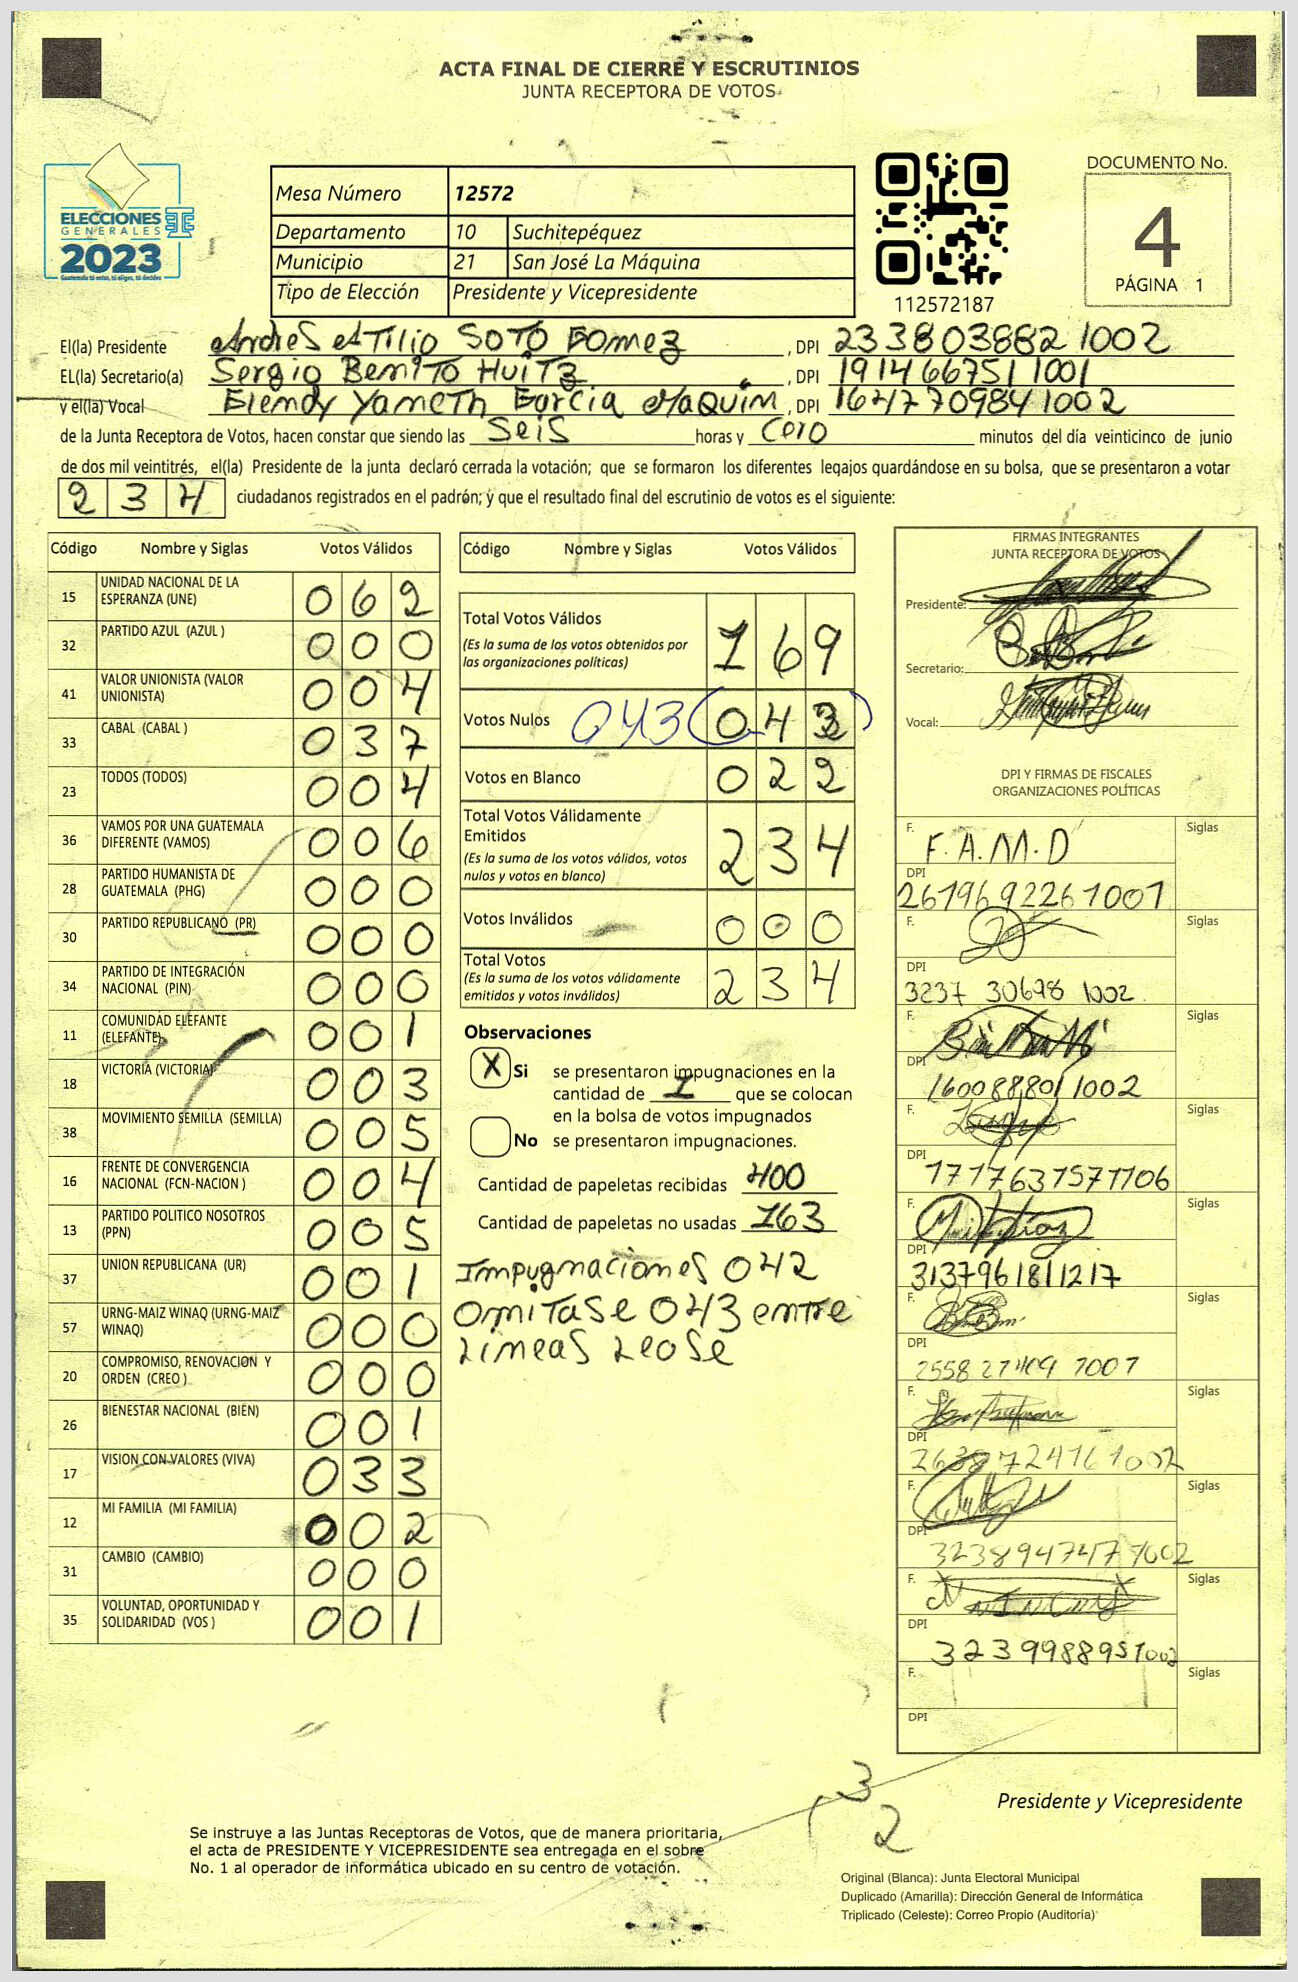 ACTA FINAL DE CIERRE Y ESCRUTINIOS
JUNTA RECEPTORA DE VOTOS
ELECCIONES
GENERALES
2023
Guatemala tú estás, tú eliges, tú decides
Mesa Número 12572
Departamento 10 Suchitepéquez
Municipio 21 San José La Máquina
Tipo de Elección Presidente y Vicepresidente
112572187
DOCUMENTO No.
4
PÁGINA 1
El(la) Presidente Andres Atilio Soto Gomez, DPI 2338038821002
EL(la) Secretario(a) Sergio Benito Huitz, DPI 1914667511001
y el(la) Vocal Elendy Yameth Garcia Maquin, DPI 1647709841002
de la Junta Receptora de Votos, hacen constar que siendo las Seis horas y Cero minutos del día veinticinco de junio
de dos mil veintitrés, el(la) Presidente de la junta declaró cerrada la votación; que se formaron los diferentes legajos guardándose en su bolsa, que se presentaron a votar
234 ciudadanos registrados en el padrón; y que el resultado final del escrutinio de votos es el siguiente:
Código Nombre y Siglas Votos Válidos
15 UNIDAD NACIONAL DE LA ESPERANZA (UNE) 062
32 PARTIDO AZUL (AZUL ) 000
41 VALOR UNIONISTA (VALOR UNIONISTA) 004
33 CABAL (CABAL ) 037
23 TODOS (TODOS) 004
36 VAMOS POR UNA GUATEMALA DIFERENTE (VAMOS) 006
28 PARTIDO HUMANISTA DE GUATEMALA (PHG) 000
30 PARTIDO REPUBLICANO (PR) 000
34 PARTIDO DE INTEGRACIÓN NACIONAL (PIN) 000
11 COMUNIDAD ELEFANTE (ELEFANTE) 001
18 VICTORIA (VICTORIA) 003
38 MOVIMIENTO SEMILLA (SEMILLA) 005
16 FRENTE DE CONVERGENCIA NACIONAL (FCN-NACION ) 004
13 PARTIDO POLITICO NOSOTROS (PPN) 005
37 UNION REPUBLICANA (UR) 001
57 URNG-MAIZ WINAQ (URNG-MAIZ WINAQ) 000
20 COMPROMISO, RENOVACION Y ORDEN (CREO ) 000
26 BIENESTAR NACIONAL (BIEN) 001
17 VISION CON VALORES (VIVA) 033
12 MI FAMILIA (MI FAMILIA) 002
31 CAMBIO (CAMBIO) 000
35 VOLUNTAD, OPORTUNIDAD Y SOLIDARIDAD (VOS ) 001
Código Nombre y Siglas Votos Válidos
Total Votos Válidos 169
(Es la suma de los votos obtenidos por
las organizaciones políticas)
Votos Nulos 043 (043)
Votos en Blanco 022
Total Votos Válidamente
Emitidos 234
(Es la suma de los votos válidos, votos
nulos y votos en blanco)
Votos Inválidos 000
Total Votos 234
(Es la suma de los votos válidamente
emitidos y votos inválidos)
Observaciones
X Si se presentaron impugnaciones en la
cantidad de 1 que se colocan
en la bolsa de votos impugnados
No se presentaron impugnaciones.
Cantidad de papeletas recibidas 400
Cantidad de papeletas no usadas 163
Impugnaciones 042
omitase 043 entre
Lineas Lease
FIRMAS INTEGRANTES
JUNTA RECEPTORA DE VOTOS
Presidente:
Secretario:
Vocal:
DPI Y FIRMAS DE FISCALES
ORGANIZACIONES POLÍTICAS
F. F.A.M.D Siglas
DPI 2679692261001
F. Siglas
DPI 3237 30698 1002
F. Siglas
DPI 1600888011002
F. Siglas
DPI 1717637571106
F. Siglas
DPI 3137961811217
F. Siglas
DPI
F. Siglas
DPI
F. Siglas
DPI
F. Siglas
DPI 3239988951002
F. Siglas
DPI
3
2
Presidente y Vicepresidente
Se instruye a las Juntas Receptoras de Votos, que de manera prioritaria,
el acta de PRESIDENTE Y VICEPRESIDENTE sea entregada en el sobre
No. 1 al operador de informática ubicado en su centro de votación.
Original (Blanca): Junta Electoral Municipal
Duplicado (Amarilla): Dirección General de Informática
Triplicado (Celeste): Correo Propio (Auditoría)